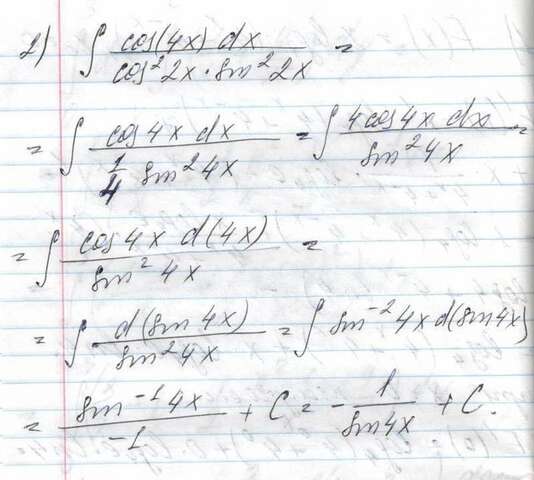 2) ∫ cos(4x) dx / cos² 2x · sin² 2x =
= ∫ cos 4x dx / 1/4 sin² 4x = ∫ 4 cos 4x dx / sin² 4x =
= ∫ cos 4x d(4x) / sin² 4x =
= ∫ d(sin 4x) / sin² 4x = ∫ sin⁻² 4x d(sin 4x)
= sin⁻¹ 4x / -1 + C = - 1 / sin 4x + C.